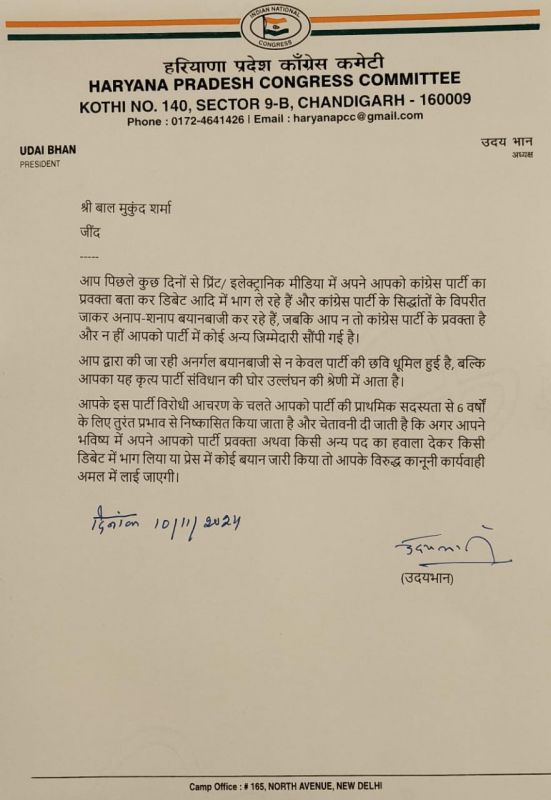 INDIAN NATIONAL
CONGRESS
हरियाणा प्रदेश काँग्रेस कमेटी
HARYANA PRADESH CONGRESS COMMITTEE
KOTHI NO. 140, SECTOR 9-B, CHANDIGARH - 160009
Phone : 0172-4641426 | Email : haryanapcc@gmail.com
UDAI BHAN
PRESIDENT
उदय भान
अध्यक्ष
श्री बाल मुकुंद शर्मा
जींद
-----
आप पिछले कुछ दिनों से प्रिंट/ इलेक्ट्रानिक मीडिया में अपने आपको कांग्रेस पार्टी का
प्रवक्ता बता कर डिबेट आदि में भाग ले रहे हैं और कांग्रेस पार्टी के सिद्धांतों के विपरीत
जाकर अनाप-शनाप बयानबाजी कर रहे हैं, जबकि आप न तो कांग्रेस पार्टी के प्रवक्ता है
और न हीं आपको पार्टी में कोई अन्य जिम्मेदारी सौंपी गई है।
आप द्वारा की जा रही अनर्गल बयानबाजी से न केवल पार्टी की छवि धूमिल हुई है, बल्कि
आपका यह कृत्य पार्टी संविधान की घोर उल्लंघन की श्रेणी में आता है।
आपके इस पार्टी विरोधी आचरण के चलते आपको पार्टी की प्राथमिक सदस्यता से 6 वर्षों
के लिए तुरंत प्रभाव से निष्कासित किया जाता है और चेतावनी दी जाती है कि अगर आपने
भविष्य में अपने आपको पार्टी प्रवक्ता अथवा किसी अन्य पद का हवाला देकर किसी
डिबेट में भाग लिया या प्रेस में कोई बयान जारी किया तो आपके विरुद्ध कानूनी कार्यवाही
अमल में लाई जाएगी।
दिनांक 10/11/2024
उदयभान
(उदयभान)
Camp Office : # 165, NORTH AVENUE, NEW DELHI